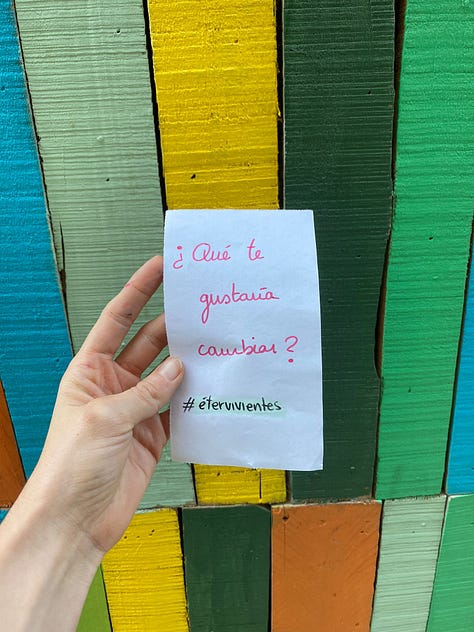 ¿Qué te
gustaría
cambiar?
#étervivientes